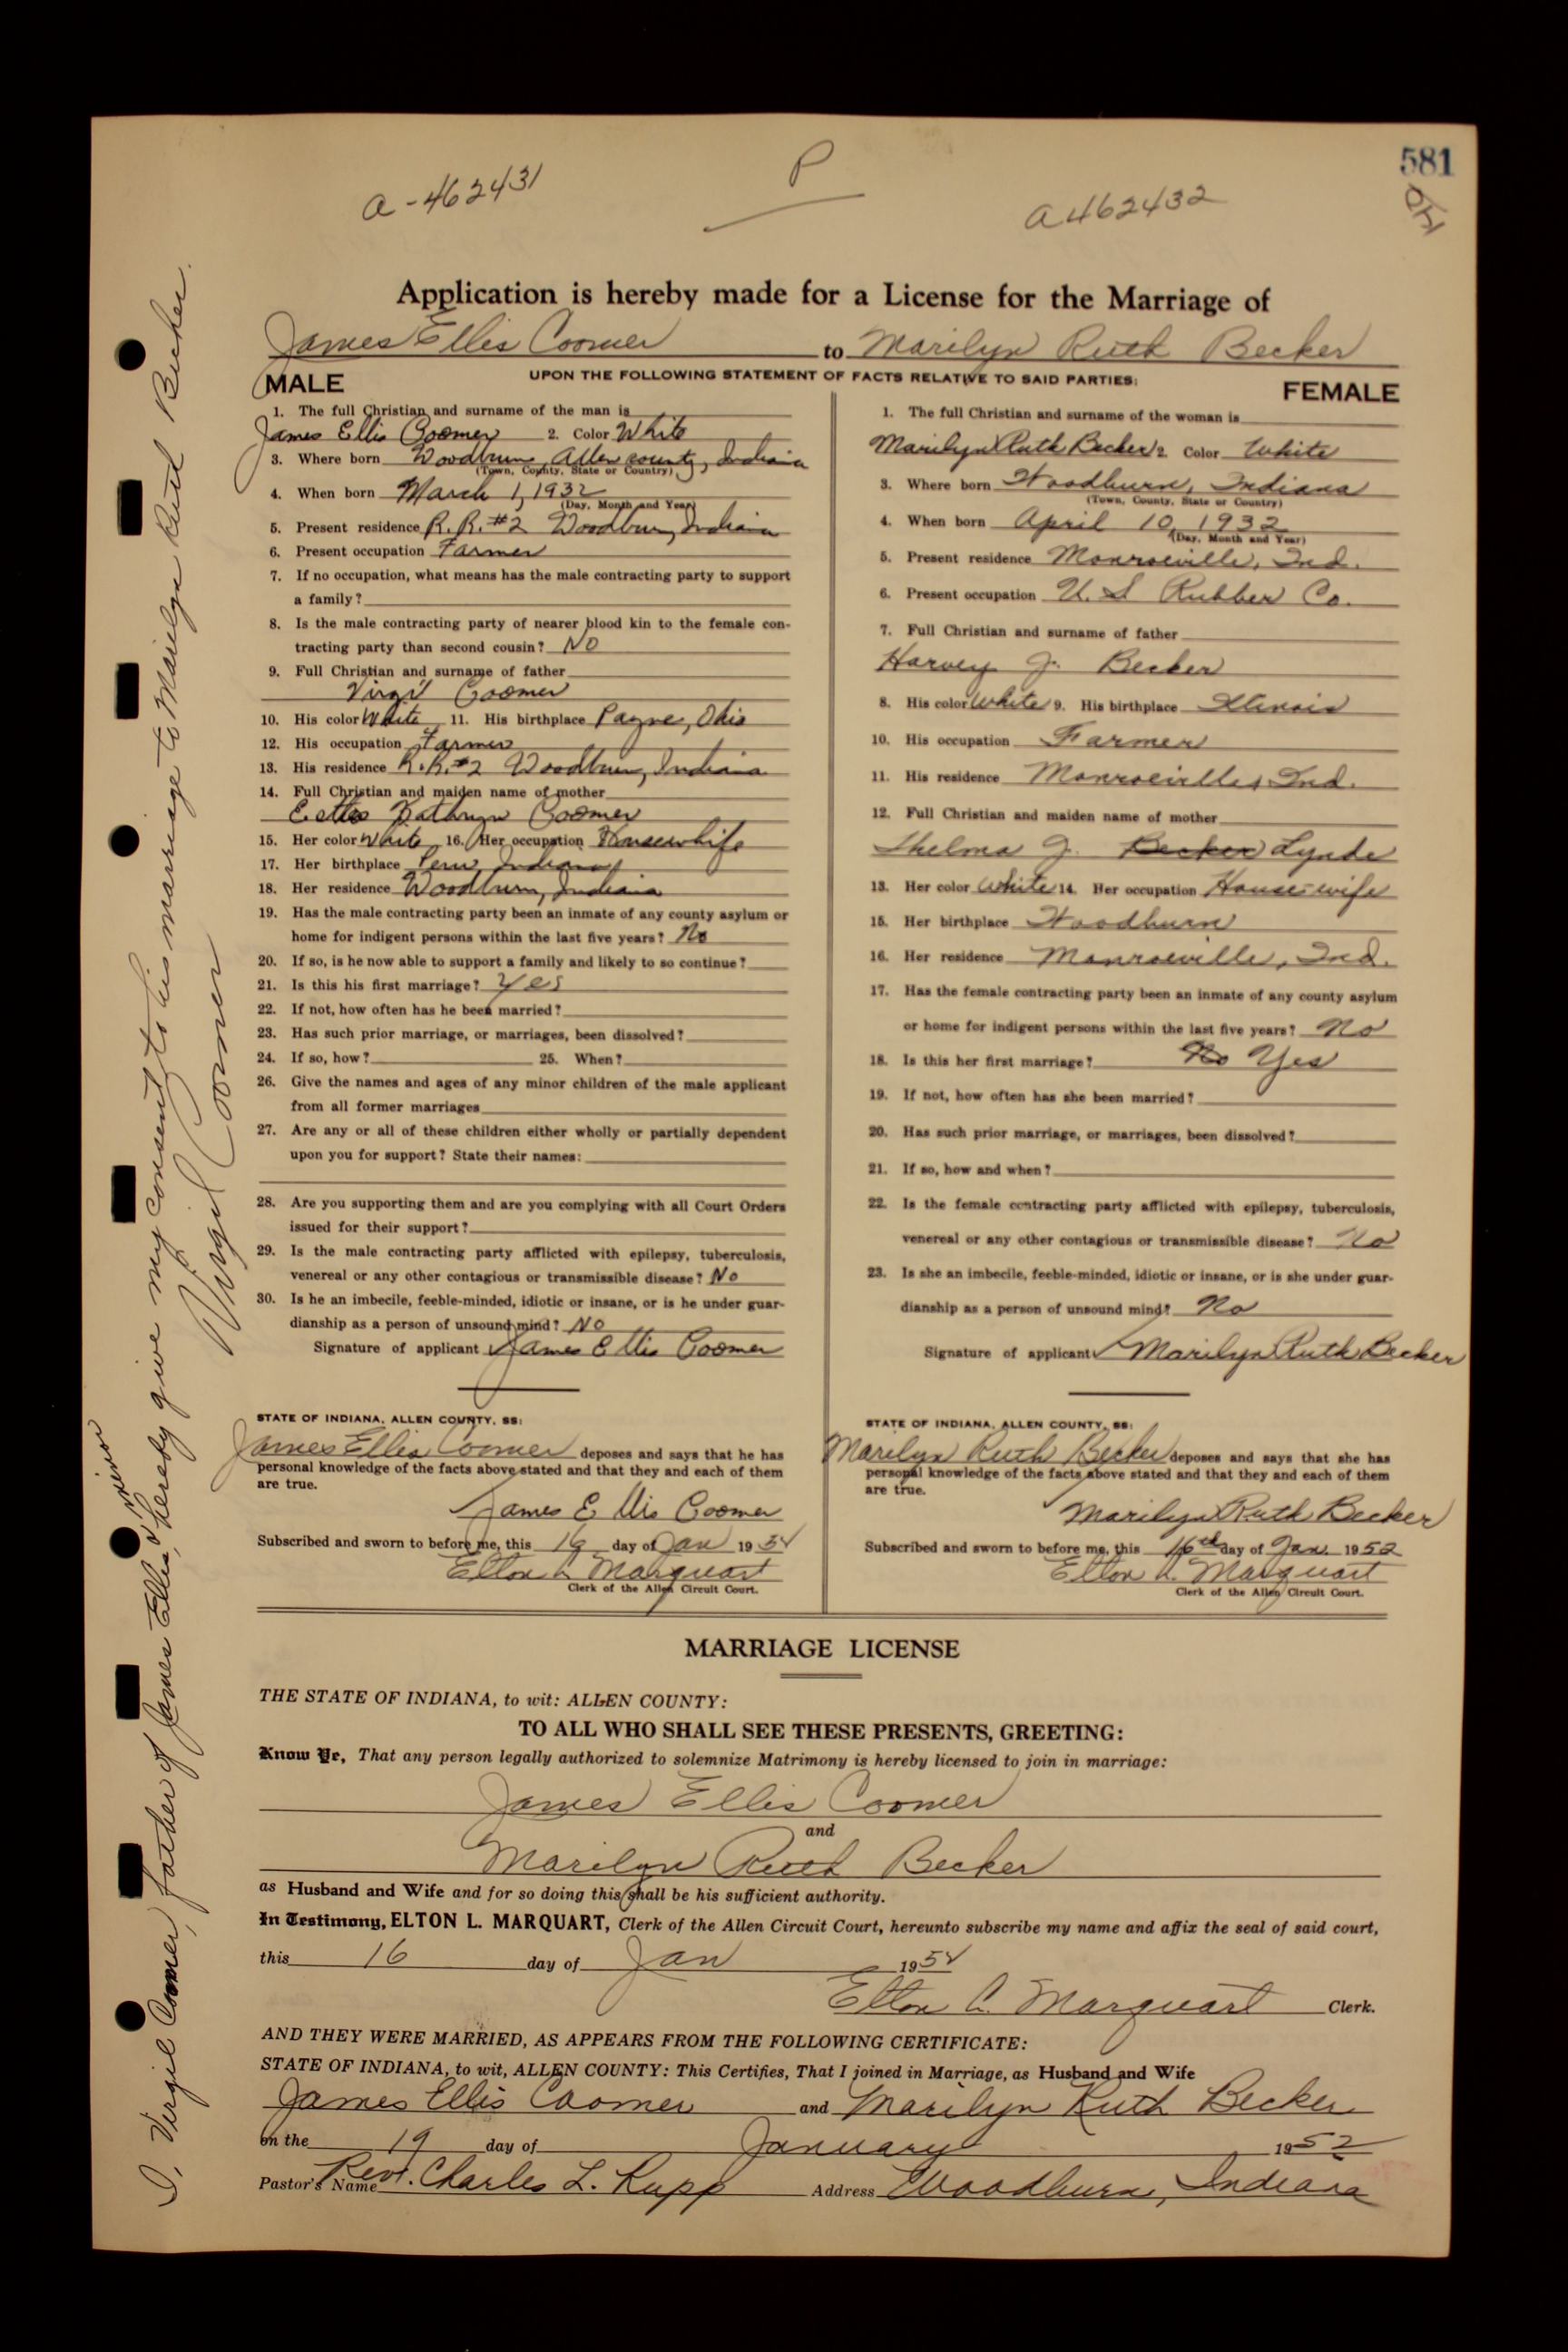 581
P
a-462431
a462432
Application is hereby made for a License for the Marriage of
James Ellis Coomer to Marilyn Ruth Becker
UPON THE FOLLOWING STATEMENT OF FACTS RELATIVE TO SAID PARTIES:
MALE
1. The full Christian and surname of the man is
James Ellis Coomer 2. Color White
3. Where born Woodburn Allen county, Indiana
(Town, County, State or Country)
4. When born March 1, 1932
(Day, Month and Year)
5. Present residence R. R. #2 Woodburn, Indiana
6. Present occupation Farmer
7. If no occupation, what means has the male contracting party to support
a family?
8. Is the male contracting party of nearer blood kin to the female con-
tracting party than second cousin? NO
9. Full Christian and surname of father
Virgil Coomer
10. His color White 11. His birthplace Payne, Ohio
12. His occupation Farmer
13. His residence R.R.#2 Woodburn, Indiana
14. Full Christian and maiden name of mother
Kathryn Coomer
15. Her color White 16. Her occupation Housewhife
17. Her birthplace Peru, Indiana
18. Her residence Woodburn, Indiana
19. Has the male contracting party been an inmate of any county asylum or
home for indigent persons within the last five years? No
20. If so, is he now able to support a family and likely to so continue?
21. Is this his first marriage? Yes
22. If not, how often has he been married?
23. Has such prior marriage, or marriages, been dissolved?
24. If so, how? 25. When?
26. Give the names and ages of any minor children of the male applicant
from all former marriages
27. Are any or all of these children either wholly or partially dependent
upon you for support? State their names:
28. Are you supporting them and are you complying with all Court Orders
issued for their support?
29. Is the male contracting party afflicted with epilepsy, tuberculosis,
venereal or any other contagious or transmissible disease? No
30. Is he an imbecile, feeble-minded, idiotic or insane, or is he under guar-
dianship as a person of unsound mind? NO
Signature of applicant James Ellis Coomer
STATE OF INDIANA, ALLEN COUNTY, SS:
James Ellis Coomer deposes and says that he has
personal knowledge of the facts above stated and that they and each of them
are true.
James Ellis Coomer
Subscribed and sworn to before me, this 16 day of Jan 1952
Elton L. Marquart
Clerk of the Allen Circuit Court.
FEMALE
1. The full Christian and surname of the woman is
Marilyn Ruth Becker 2. Color White
3. Where born Woodburn, Indiana
(Town, County, State or Country)
4. When born April 10, 1932
(Day, Month and Year)
5. Present residence Monroeville, Ind.
6. Present occupation U. S Rubber Co.
7. Full Christian and surname of father
Harvey J. Becker
8. His color White 9. His birthplace Illinois
10. His occupation Farmer
11. His residence Monroeville, Ind.
12. Full Christian and maiden name of mother
Thelma J. Becker Lynde
13. Her color White 14. Her occupation House-wife
15. Her birthplace Woodburn
16. Her residence Monroeville, Ind.
17. Has the female contracting party been an inmate of any county asylum
or home for indigent persons within the last five years? No
18. Is this her first marriage? No Yes
19. If not, how often has she been married?
20. Has such prior marriage, or marriages, been dissolved?
21. If so, how and when?
22. Is the female contracting party afflicted with epilepsy, tuberculosis,
venereal or any other contagious or transmissible disease? No
23. Is she an imbecile, feeble-minded, idiotic or insane, or is she under guar-
dianship as a person of unsound mind? No
Signature of applicant Marilyn Ruth Becker
STATE OF INDIANA, ALLEN COUNTY, SS:
Marilyn Ruth Becker deposes and says that she has
personal knowledge of the facts above stated and that they and each of them
are true.
Marilyn Ruth Becker
Subscribed and sworn to before me, this 16th day of Jan. 1952
Elton L. Marquart
Clerk of the Allen Circuit Court.
MARRIAGE LICENSE
THE STATE OF INDIANA, to wit: ALLEN COUNTY:
TO ALL WHO SHALL SEE THESE PRESENTS, GREETING:
Know Ye, That any person legally authorized to solemnize Matrimony is hereby licensed to join in marriage:
James Ellis Coomer
and
Marilyn Ruth Becker
as Husband and Wife and for so doing this shall be his sufficient authority.
In Testimony, ELTON L. MARQUART, Clerk of the Allen Circuit Court, hereunto subscribe my name and affix the seal of said court,
this 16 day of Jan 1952
Elton L. Marquart Clerk.
AND THEY WERE MARRIED, AS APPEARS FROM THE FOLLOWING CERTIFICATE:
STATE OF INDIANA, to wit, ALLEN COUNTY: This Certifies, That I joined in Marriage, as Husband and Wife
James Ellis Coomer and Marilyn Ruth Becker
on the 19 day of January 1952
Pastor's Name Rev. Charles L. Rupp Address Woodburn, Indiana
I, Virgil Coomer, father of James Ellis, a minor hereby give my consent to his marriage to Marilyn Ruth Becker.
Virgil Coomer